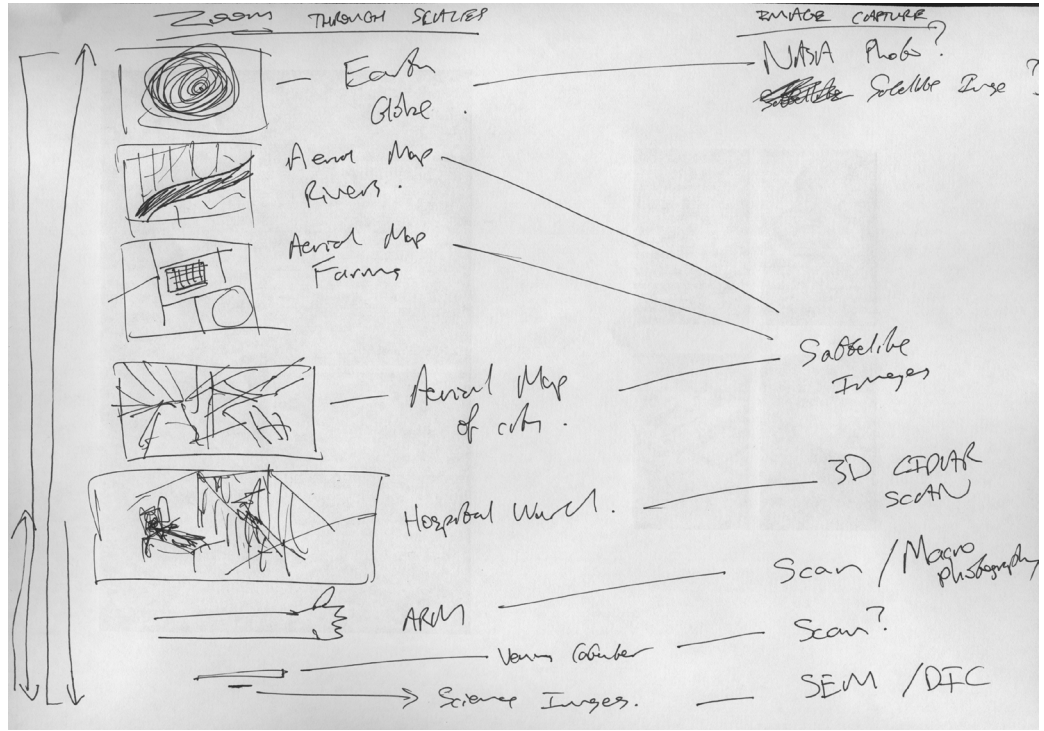 ZOOM THROUGH SCALES
IMAGE CAPTURE
Earth
Globe.
NASA Photo?
Satellite Image?
Aerial Map
Rivers.
Aerial Map
Farms
Satellite
Images
Aerial Map
of city.
Hospital Ward.
3D LIDAR
SCAN
ARM
Scan / Macro
photography
Venous Catheter
Scan?
Science Images.
SEM / DIC